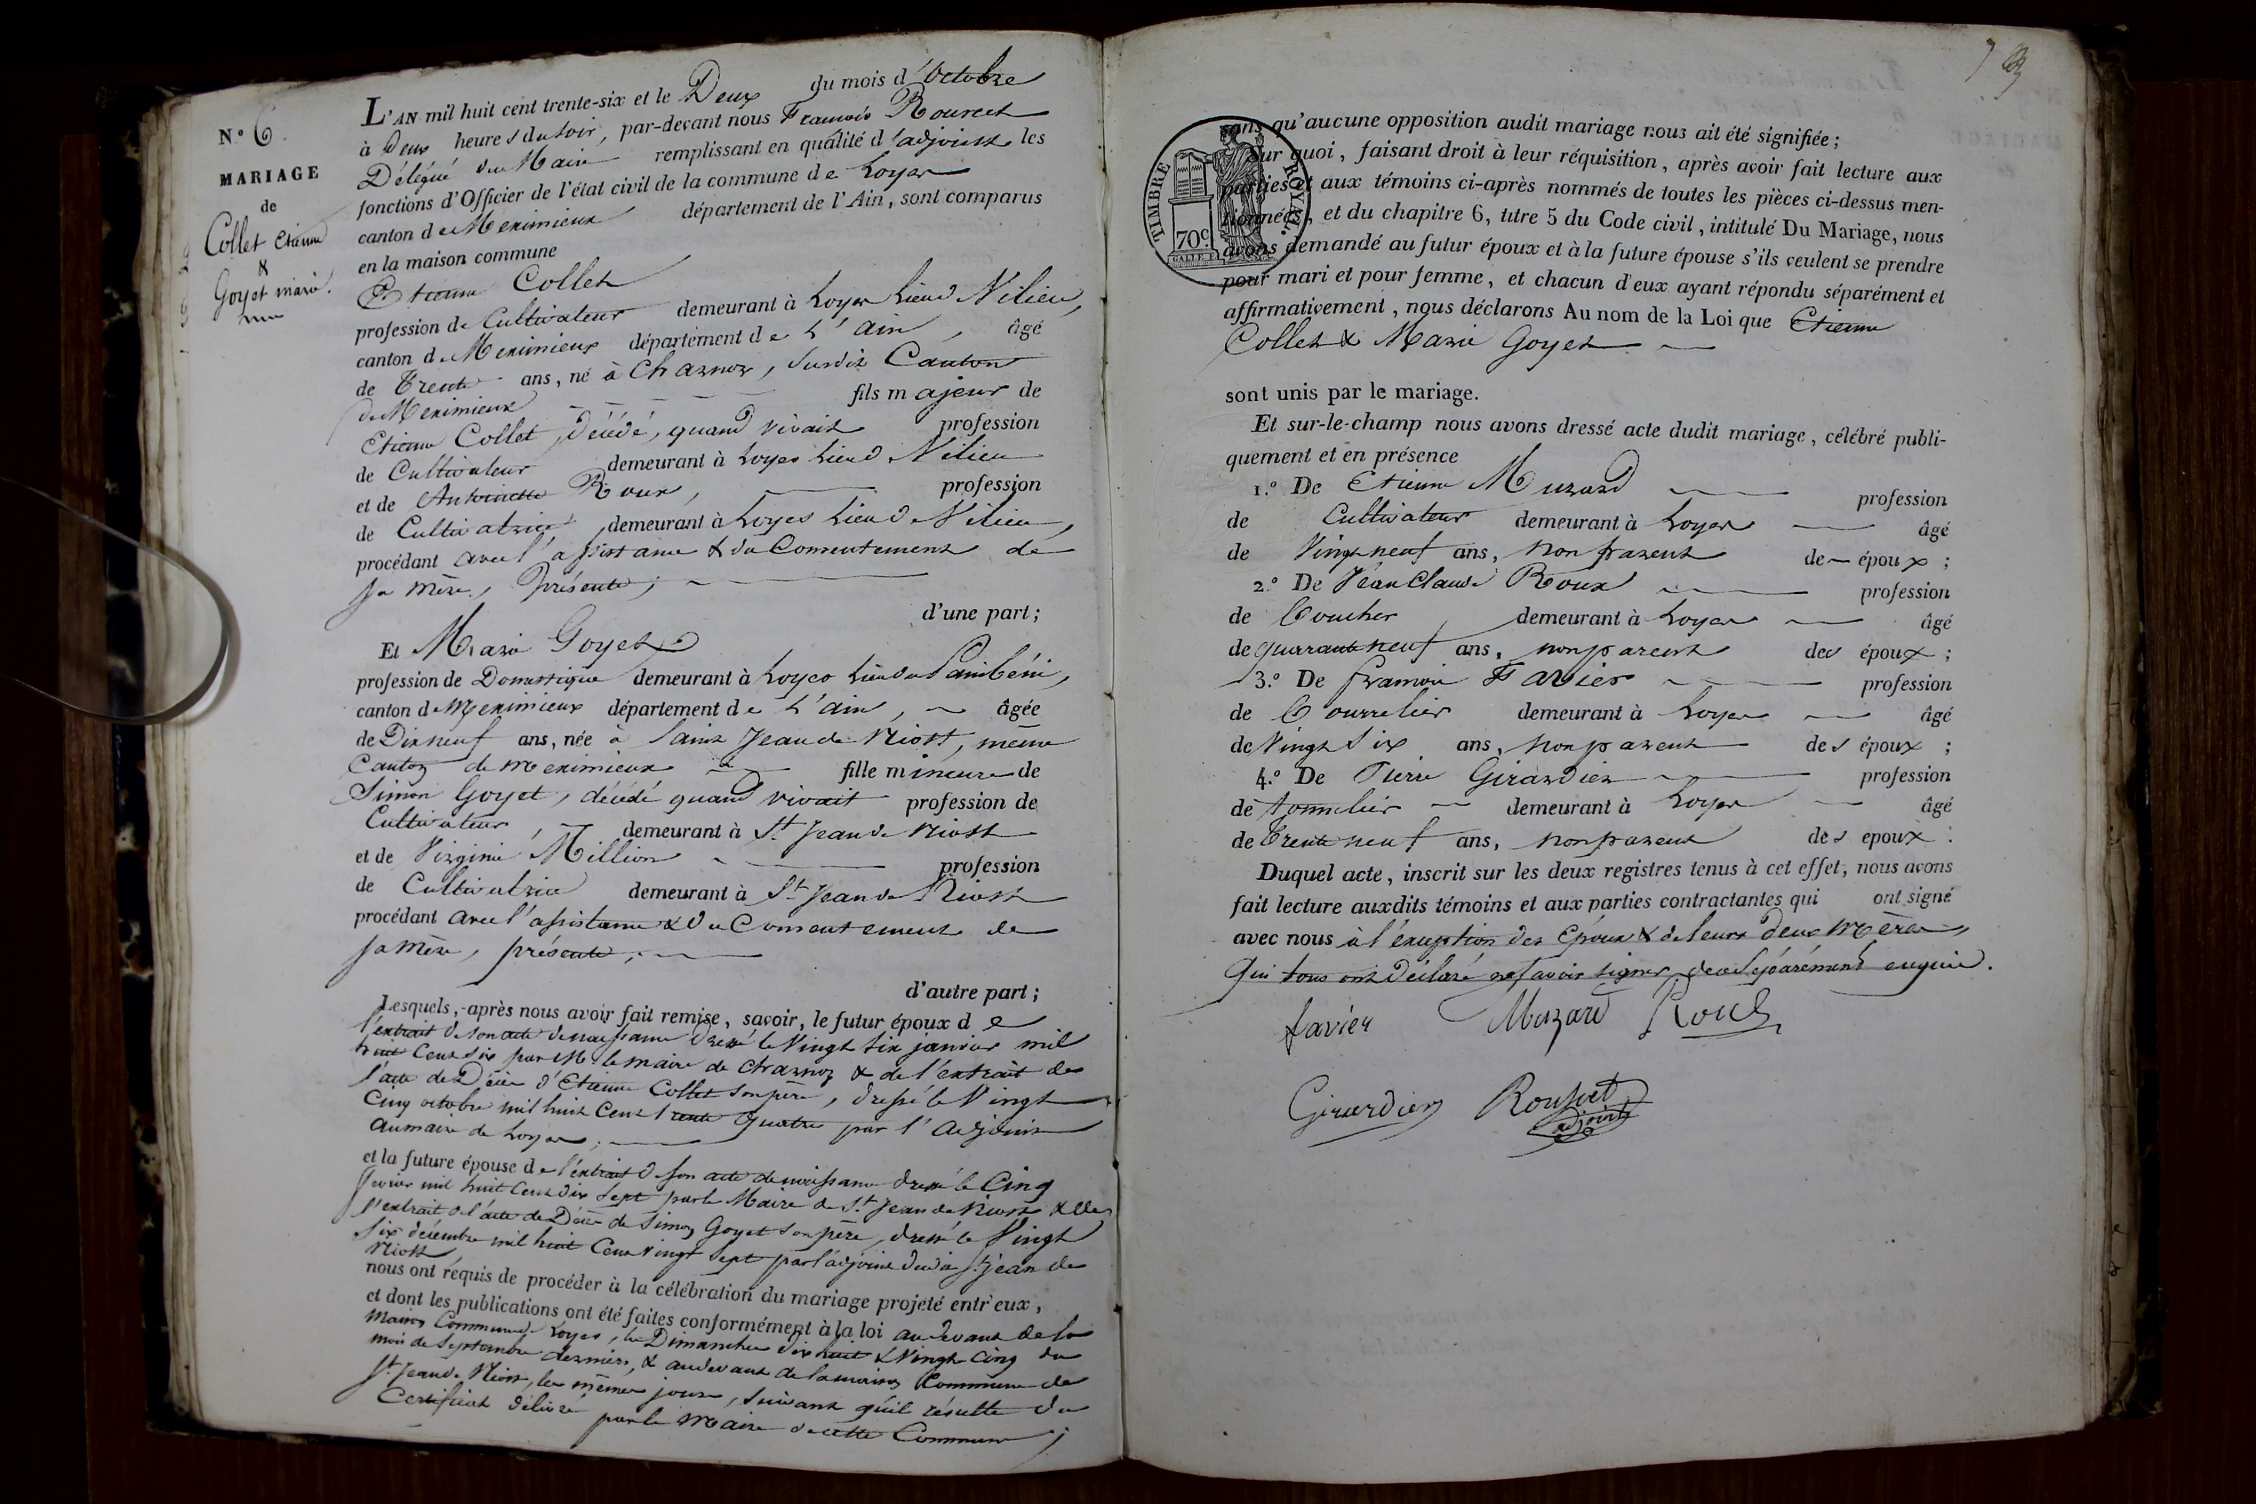 N.° 6.
MARIAGE
de
Collet Etienne
&
Goyet marie.
L'AN mil huit cent trente-six et le Deux du mois d'Octobre
à Deux heures du soir, par-devant nous François Rousset
Délégué du Maire remplissant en qualité d'adjoint les
fonctions d'Officier de l'état civil de la commune de Loyes
canton de Meximieux département de l'Ain, sont comparus
en la maison commune
Etienne Collet
profession de Cultivateur demeurant à Loyes Lieu de Vilieu,
canton de Meximieux département de L'ain, âgé
de Trente ans, né à Charnoz, susdit Canton
de Meximieux fils majeur de
Etienne Collet, décédé, quand vivait profession
de Cultivateur demeurant à Loyes Lieu de Vilieu
et de Antoinette Roux, profession
de Cultivatrice, demeurant à Loyes Lieu de Vilieu,
procédant avec l'assistance & du Consentement de
sa mère, Présente;
d'une part;
Et Marie Goyet
profession de Domestique demeurant à Loyes Lieu de
canton de Meximieux département de L'ain, âgée
de Dix neuf ans, née à Saint Jean de Niost, même
Canton de meximieux fille mineure de
Simon Goyet, décédé quand vivait profession de
Cultivateur, demeurant à St Jean de Niost
et de Virginie Million profession
de Cultivatrice demeurant à St Jean de Niost
procédant avec l'assistance & du Consentement de
sa mère, présente;
d'autre part;
Lesquels, après nous avoir fait remise, savoir, le futur époux de
l'extrait de son acte de naissance dressé le Vingt six janvier mil
huit Cent six par Mr le maire de Charnoz & de l'extrait de
l'acte de Décès d'Etienne Collet son père, dressé le Vingt
Cinq octobre mil huit Cent trente quatre par l'adjoint
au maire de Loyes;
et la future épouse de l'extrait de son acte de naissance dressé le Cinq
février mil huit Cent dix sept par le Maire de St Jean de Niost & de
l'extrait de l'acte de Décès de Simon Goyet son père, dressé le Vingt
six décembre mil huit Cent vingt sept par l'adjoint dudit St jean de
Niost,
nous ont requis de procéder à la célébration du mariage projeté entr'eux,
et dont les publications ont été faites conformément à la loi au devant de la
Maison Commune de Loyes, les Dimanches dix huit & Vingt Cinq du
mois de Septembre dernier, & au devant de la maison Commune de
St Jean de Niost, les mêmes jours, suivant qu'il résulte du
Certificat délivré par le maire de cette Commune;
TIMBRE ROYAL
70c.
sans qu'aucune opposition audit mariage nous ait été signifiée;
Sur quoi, faisant droit à leur réquisition, après avoir fait lecture aux
parties et aux témoins ci-après nommés de toutes les pièces ci-dessus men-
tionnées, et du chapitre 6, titre 5 du Code civil, intitulé Du Mariage, nous
avons demandé au futur époux et à la future épouse s'ils veulent se prendre
pour mari et pour femme, et chacun d'eux ayant répondu séparément et
affirmativement, nous déclarons Au nom de la Loi que Etienne
Collet & Marie Goyet
sont unis par le mariage.
Et sur-le-champ nous avons dressé acte dudit mariage, célébré publi-
quement et en présence
1.° De Etienne Muzard profession
de Cultivateur demeurant à Loyes âgé
de Vingt neuf ans, non parent de époux;
2.° De Jean Claude Roux profession
de Boucher, demeurant à Loyes âgé
de quarante neuf ans, non parent des époux;
3.° De François Favier profession
de Bourrelier demeurant à Loyes âgé
de Vingt Six ans, non parent des époux;
4.° De Pierre Girardier profession
de tonnelier demeurant à Loyes âgé
de Trente neuf ans, non parent des époux.
Duquel acte, inscrit sur les deux registres tenus à cet effet, nous avons
fait lecture auxdits témoins et aux parties contractantes qui ont signé
avec nous à l'éxception des Epoux & de leurs deux mères,
Qui tous ont déclaré ne savoir signer, de ce Séparément enquis.
favier Muzard Roux
Girardier Rousset
adjoint